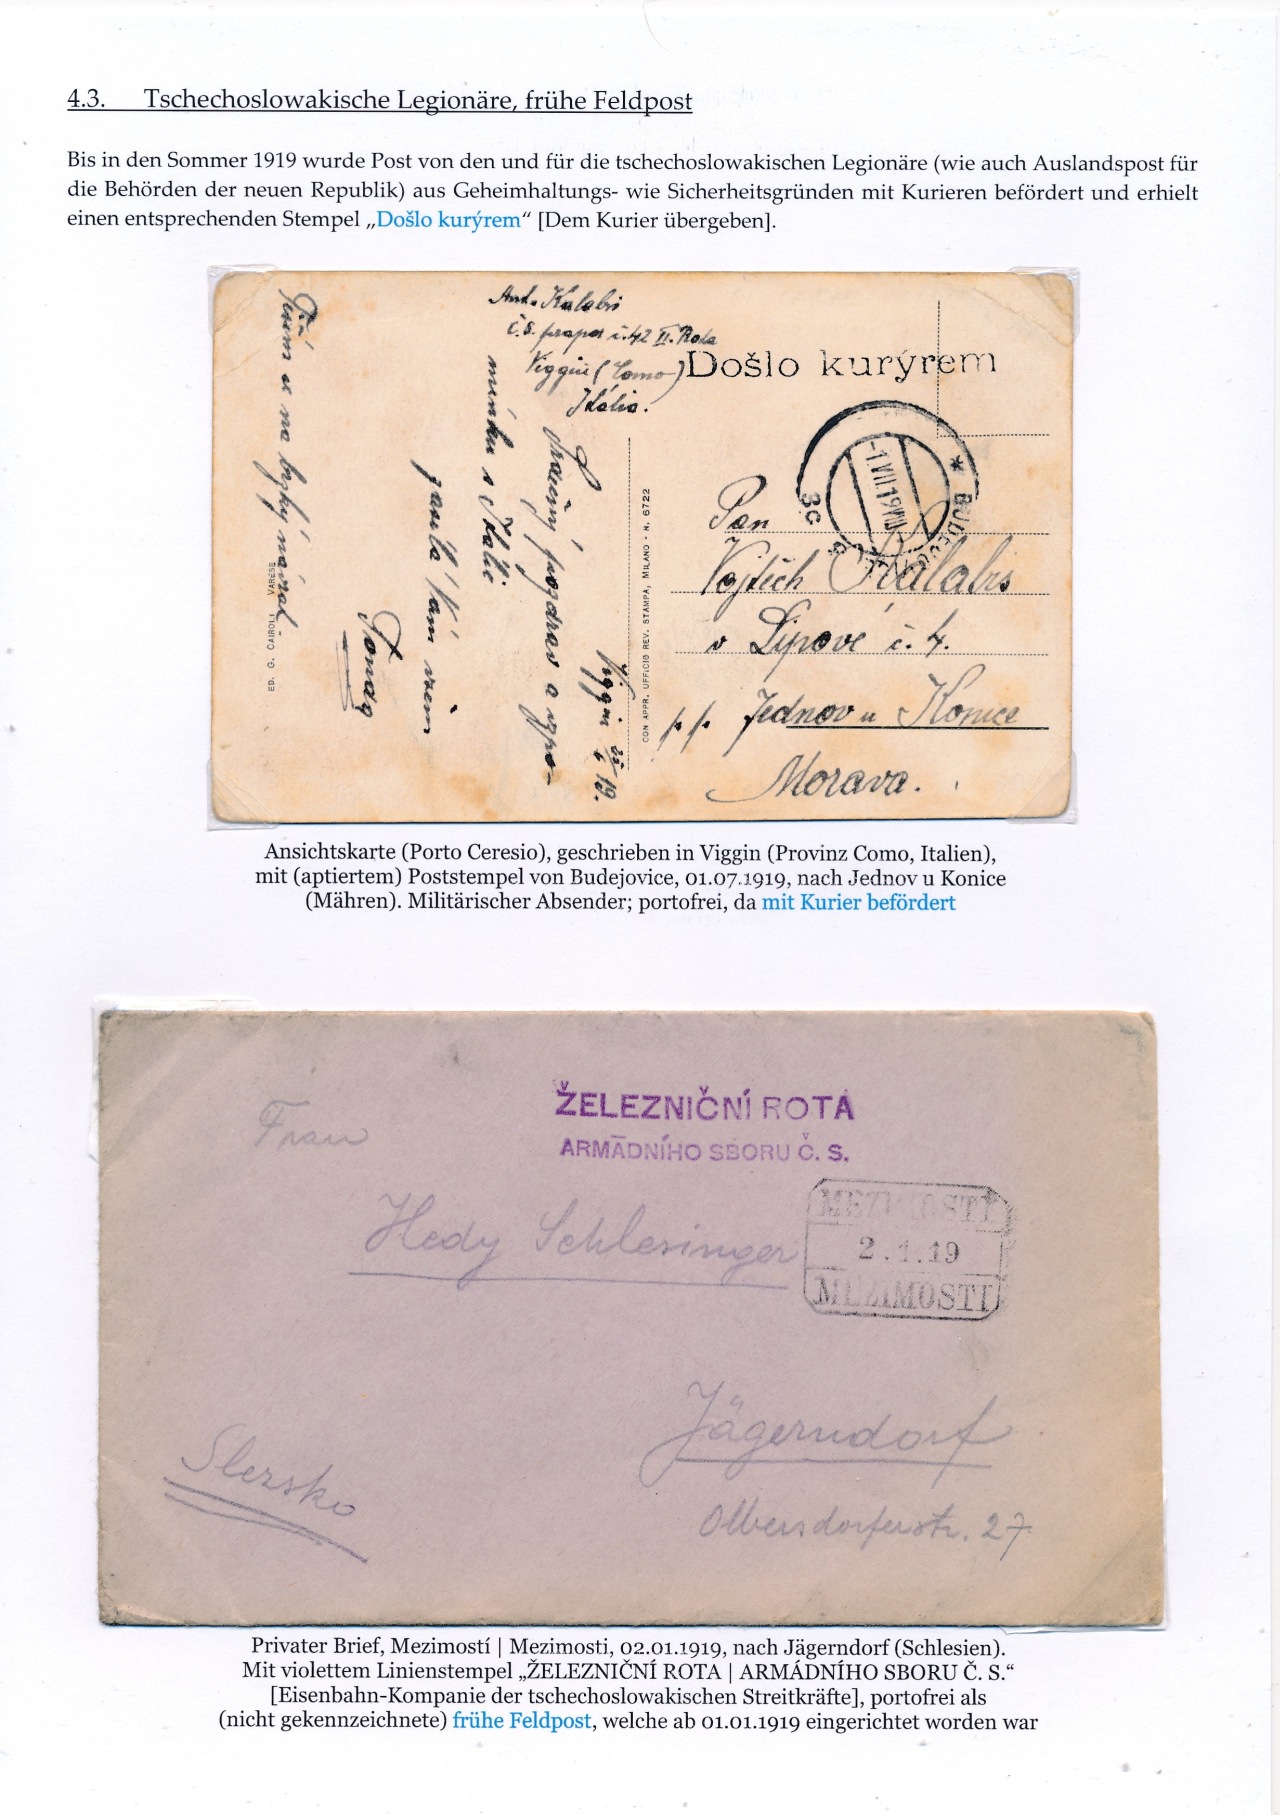 4.3. Tschechoslowakische Legionäre, frühe Feldpost
Bis in den Sommer 1919 wurde Post von den und für die tschechoslowakischen Legionäre (wie auch Auslandspost für
die Behörden der neuen Republik) aus Geheimhaltungs- wie Sicherheitsgründen mit Kurieren befördert und erhielt
einen entsprechenden Stempel „Došlo kurýrem“ [Dem Kurier übergeben].
Ant. Kalabis
č.s. prapor č. 42 II. Rota
Viggiu (Como)
Itálie.
Došlo kurýrem
-1.VII.19
* BUDĚJOVICE
3c
Viggiu 19.
Srdečný pozdrav a vzpo-
mínku s Itálie
zasílá Vám všem
Tonda
a na brzký návrat.
ED. G. CAIROLI VARESE
CON APPR. UFFICIO REV. STAMPA, MILANO - N. 6722
Pan
Vojtěch Kalabis
v Lipové č. 4.
p. p. Jednov u Konice
Morava.
Ansichtskarte (Porto Ceresio), geschrieben in Viggin (Provinz Como, Italien),
mit (aptiertem) Poststempel von Budejovice, 01.07.1919, nach Jednov u Konice
(Mähren). Militärischer Absender; portofrei, da mit Kurier befördert
ŽELEZNIČNÍ ROTA
ARMÁDNÍHO SBORU Č. S.
Frau
Hedy Schlesinger
MEZIMOSTÍ
2.1.19
MEZIMOSTI
Jägerndorf
Slezsko
Olbersdorferstr. 27
Privater Brief, Mezimostí | Mezimosti, 02.01.1919, nach Jägerndorf (Schlesien).
Mit violettem Linienstempel „ŽELEZNIČNÍ ROTA | ARMÁDNÍHO SBORU Č. S.“
[Eisenbahn-Kompanie der tschechoslowakischen Streitkräfte], portofrei als
(nicht gekennzeichnete) frühe Feldpost, welche ab 01.01.1919 eingerichtet worden war